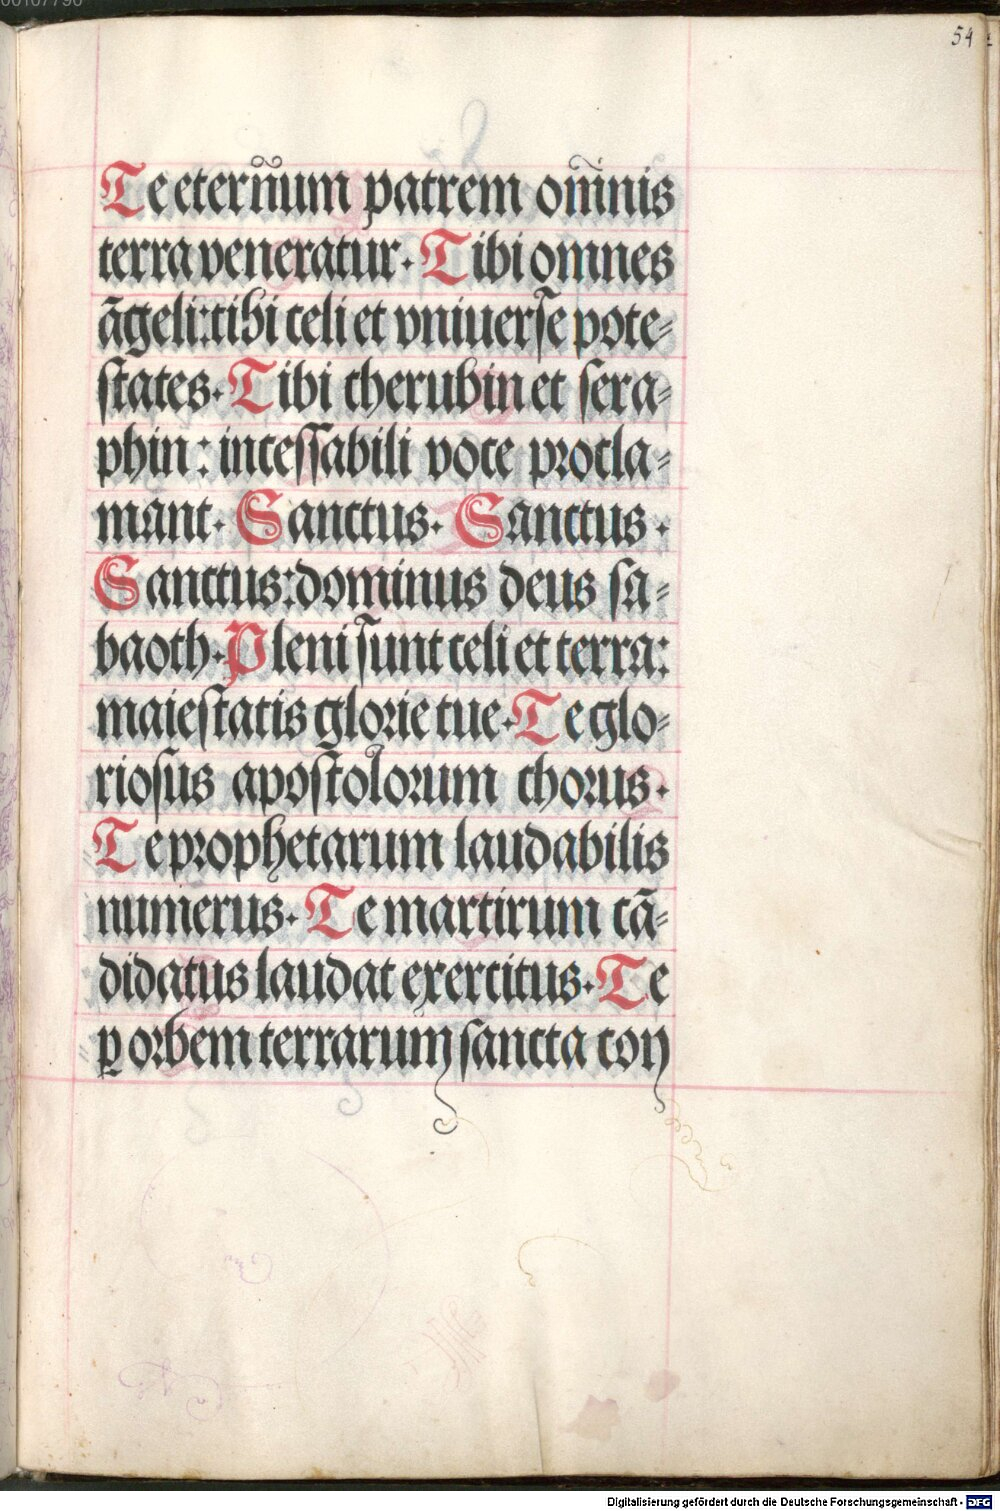 00107796
54
Te eterñum patrem om̃nis
terra veneratur. Tibi omnes
āgeli: tibi celi et vniuerse pote⸗
states. Tibi cherubin et sera⸗
phin: incessabili voce procla⸗
mant. Sanctus. Sanctus.
Sanctus: dominus deus sa⸗
baoth. Pleni sunt celi et terra:
maiestatis glorie tue. Te glo⸗
riosus apostolorum chorus.
Te prophetarum laudabilis
numerus. Te martirum cā⸗
didatus laudat exercitus. Te
ꝑ orbem terrarum sancta con
Digitalisierung gefördert durch die Deutsche Forschungsgemeinschaft - DFG